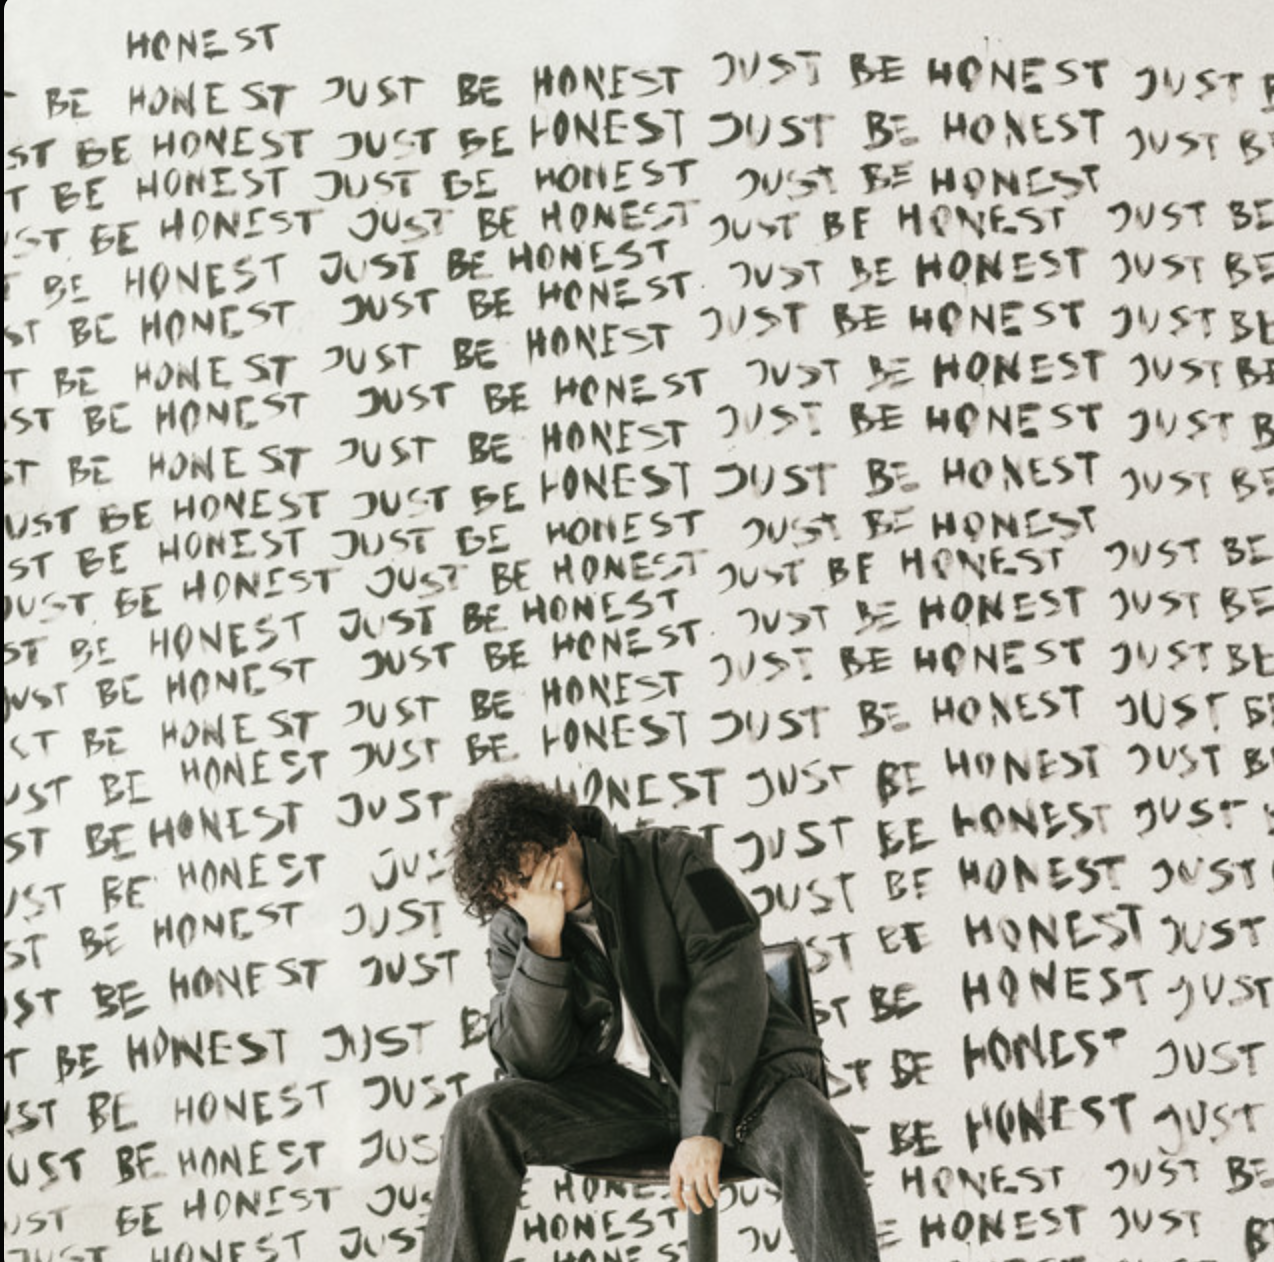 HONEST
BE HONEST JUST BE HONEST JUST BE HONEST JUST B
ST BE HONEST JUST BE HONEST JUST BE HONEST JUST BE
T BE HONEST JUST BE HONEST JUST BE HONEST
UST BE HONEST JUST BE HONEST JUST BE HONEST JUST BE
T BE HONEST JUST BE HONEST JUST BE HONEST JUST BE
ST BE HONEST JUST BE HONEST JUST BE HONEST JUST BE
T BE HONEST JUST BE HONEST JUST BE HONEST JUST BE
ST BE HONEST JUST BE HONEST JUST BE HONEST JUST B
ST BE HONEST JUST BE HONEST JUST BE HONEST JUST BE
UST BE HONEST JUST BE HONEST JUST BE HONEST
ST BE HONEST JUST BE HONEST JUST BE HONEST JUST BE
JUST BE HONEST JUST BE HONEST JUST BE HONEST JUST BE
ST BE HONEST JUST BE HONEST JUST BE HONEST JUST BE
JUST BE HONEST JUST BE HONEST JUST BE HONEST JUST BE
ST BE HONEST JUST BE HONEST JUST BE HONEST JUST B
UST BE HONEST JUST BE HONEST JUST BE HONEST JUST BE
ST BE HONEST JUST HONEST JUST BE HONEST JUST
UST BE HONEST JUS ST JUST BE HONEST JUST
ST BE HONEST JUST JUST BE HONEST JUST
UST BE HONEST JUST ST BE HONEST JUST
T BE HONEST JUST BE ST BE HONEST JUST
UST BE HONEST JUST ST BE HONEST JUST
UST BE HONEST JUS BE HONEST JUST
UST BE HONEST JUS HONE JUS HONEST JUST BE
JUST HONEST JUST HONEST JU HONEST JUST B
HONEST